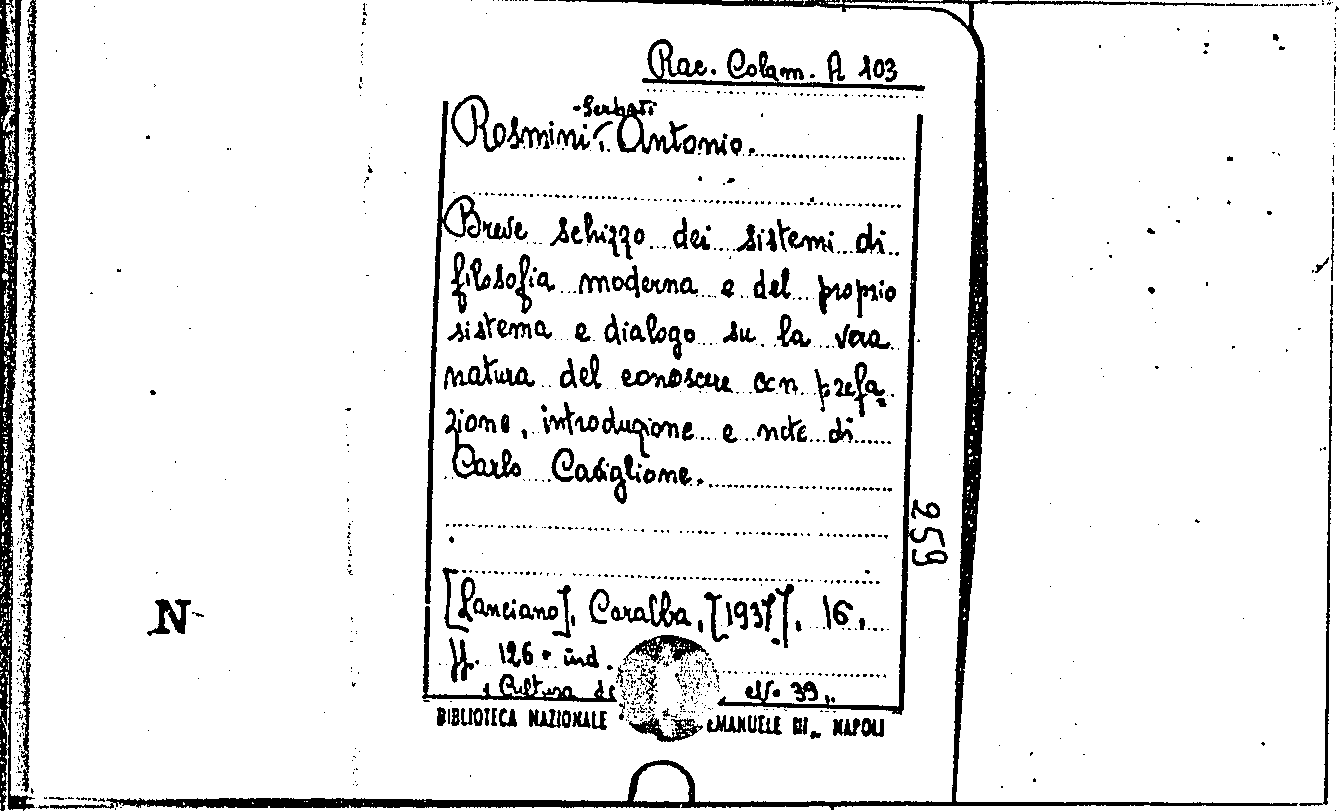 Rac. Colam. A 103
-Serbati
Rosmini, Antonio.
Breve schizzo dei sistemi di
filosofia moderna e del proprio
sistema e dialogo su la vera
natura del conoscere con prefa=
zione, introduzione e note di
Carlo Caviglione.
259
[Lanciano], Carabba, [1937], 16,
pp. 126 + ind.
"Cultura de N. 39".
BIBLIOTECA NAZIONALE EMANUELE III„ NAPOLI
N